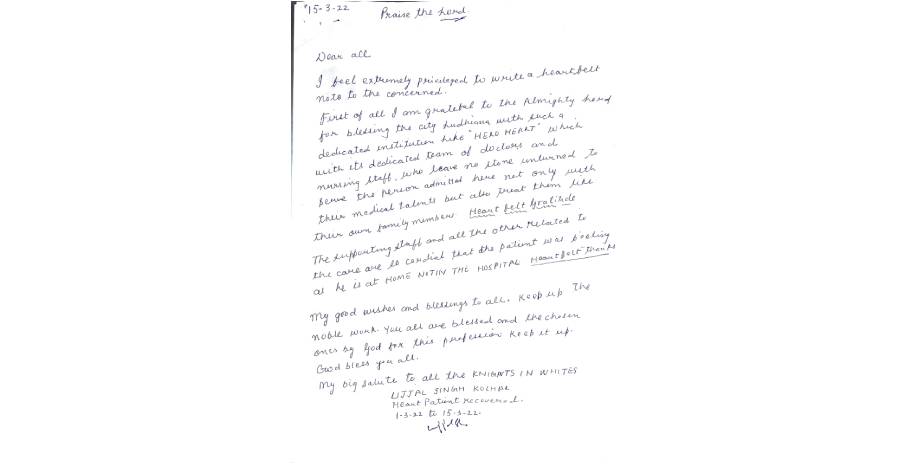 15-3-22
Praise the Lord
Dear all
I feel extremely privileged to write a heartfelt
note to the concerned.
First of all I am grateful to the Almighty Lord
for blessing the city Ludhiana with such a
dedicated institution like "HERO HEART" which
with its dedicated team of doctors and
nursing staff, who leave no stone unturned to
serve the person admitted here not only with
their medical talents but also treat them like
their own family members. Heart felt Gratitude
The supporting staff and all the other related to
the care are so cordial that the patient was feeling
as he is at HOME NOT IN THE HOSPITAL Heartfelt Thanks
My good wishes and blessings to all. Keep up The
noble work. You all are blessed and the chosen
ones by God for this profession Keep it up.
God bless you all.
My big salute to all the KNIGHTS IN WHITES
UJJAL SINGH
Heart Patient recovered.
1-3-22 to 15-3-22.